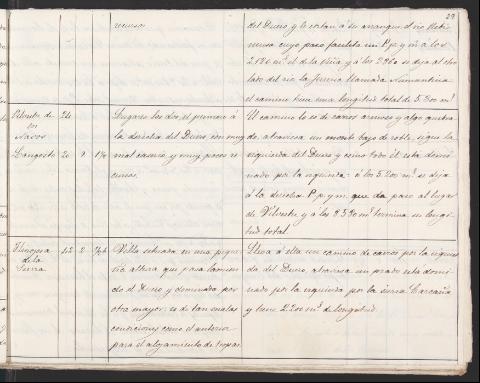 29
recursos
del Duero y le cortan á su arranque el rio
cuyo paso facilita un P. p. y m. á los
2.120 m.s el de la y á los 2960 se deja al otro
lado del rio la Sierra llamada Numantina
el camino tiene una longitud total de 5.300 m.s
Vilviestre de
los
Nabos
24
Langosto 20 9 1¾
Lugares los dos, el primero á
la derecha del Duero, con muy
mal caserio y muy pocos re
cursos.
El camino es de carros arenoso y algo quebra
do, atraviesa un monte bajo de roble, sigue la
izquierda del Duero y como todo él esta domi
nado por la izquierda: á los 5.200 m.s se deja
á la derecha P. p. y m. que da paso al lugar
de Vilvestre y á los 8590 m.s termina su longi
tud total.
Hinojosa
de la
Sierra
42 2
Villa situada en una peque
ña altura que pasa lamien
do el Duero y dominada por
otra mayor: es de tan malas
condiciones como el anterior
para el alojamiento de tropas.
Lleva á ella un camino de carros por la izquier
da del Duero, atraviesa un prado esta domi
nado por la izquierda por la sierra Carcaña
y tiene 2.200 m.s de longitud.